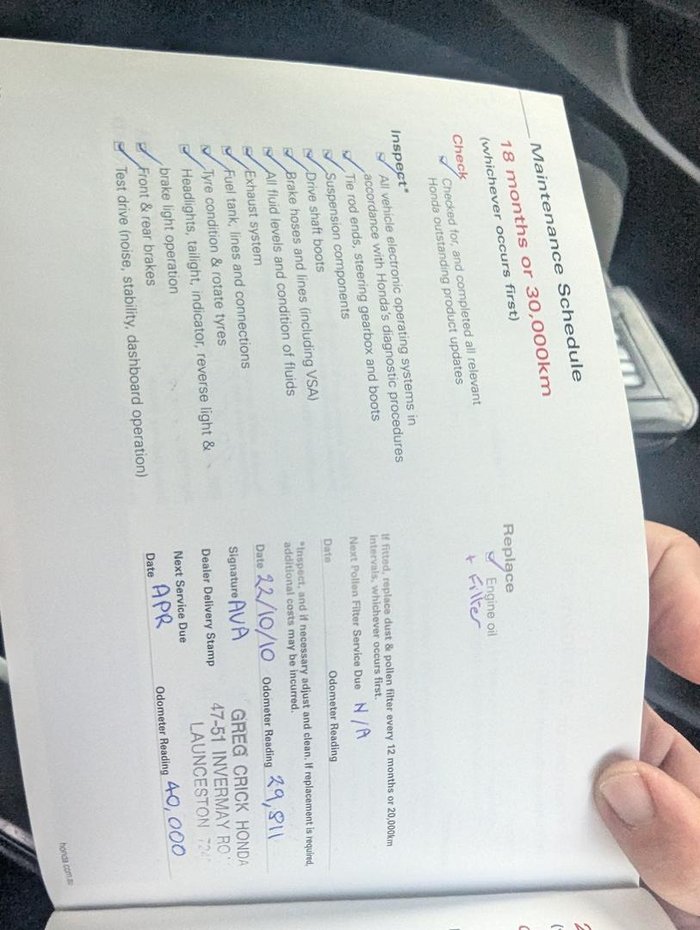 Maintenance Schedule
18 months or 30,000km
(whichever occurs first)
Check
Checked for, and completed all relevant
Honda outstanding product updates
Inspect*
All vehicle electronic operating systems in
accordance with Honda's diagnostic procedures
Tie rod ends, steering gearbox and boots
Suspension components
Drive shaft boots
Brake hoses and lines (including VSA)
All fluid levels and condition of fluids
Exhaust system
Fuel tank, lines and connections
Tyre condition & rotate tyres
Headlights, tailight, indicator, reverse light &
brake light operation
Front & rear brakes
Test drive (noise, stability, dashboard operation)
Replace
Engine oil
+ Filter
If fitted, replace dust & pollen filter every 12 months or 20,000km
intervals, whichever occurs first.
Next Pollen Filter Service Due N/A
Date Odometer Reading
*Inspect, and if necessary adjust and clean. If replacement is required,
additional costs may be incurred.
Date 22/10/10 Odometer Reading 29,811
Signature AVA
Dealer Delivery Stamp
GREG CRICK HONDA
47-51 INVERMAY
LAUNCESTON
Next Service Due
Date APR Odometer Reading 40,000
honda.com.au